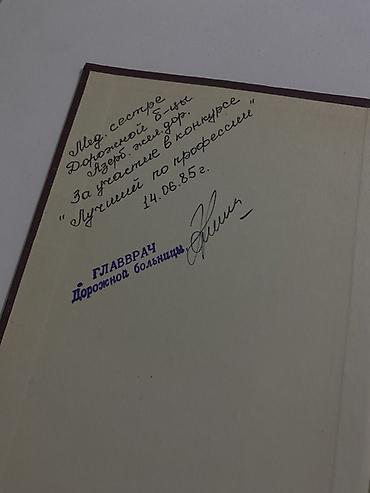 Мед. сестре
Дорожной б-цы
Азерб. жел. дор.
За участие в конкурсе
"Лучший по профессии"
14.06.85г.
ГЛАВВРАЧ
Дорожной больницы